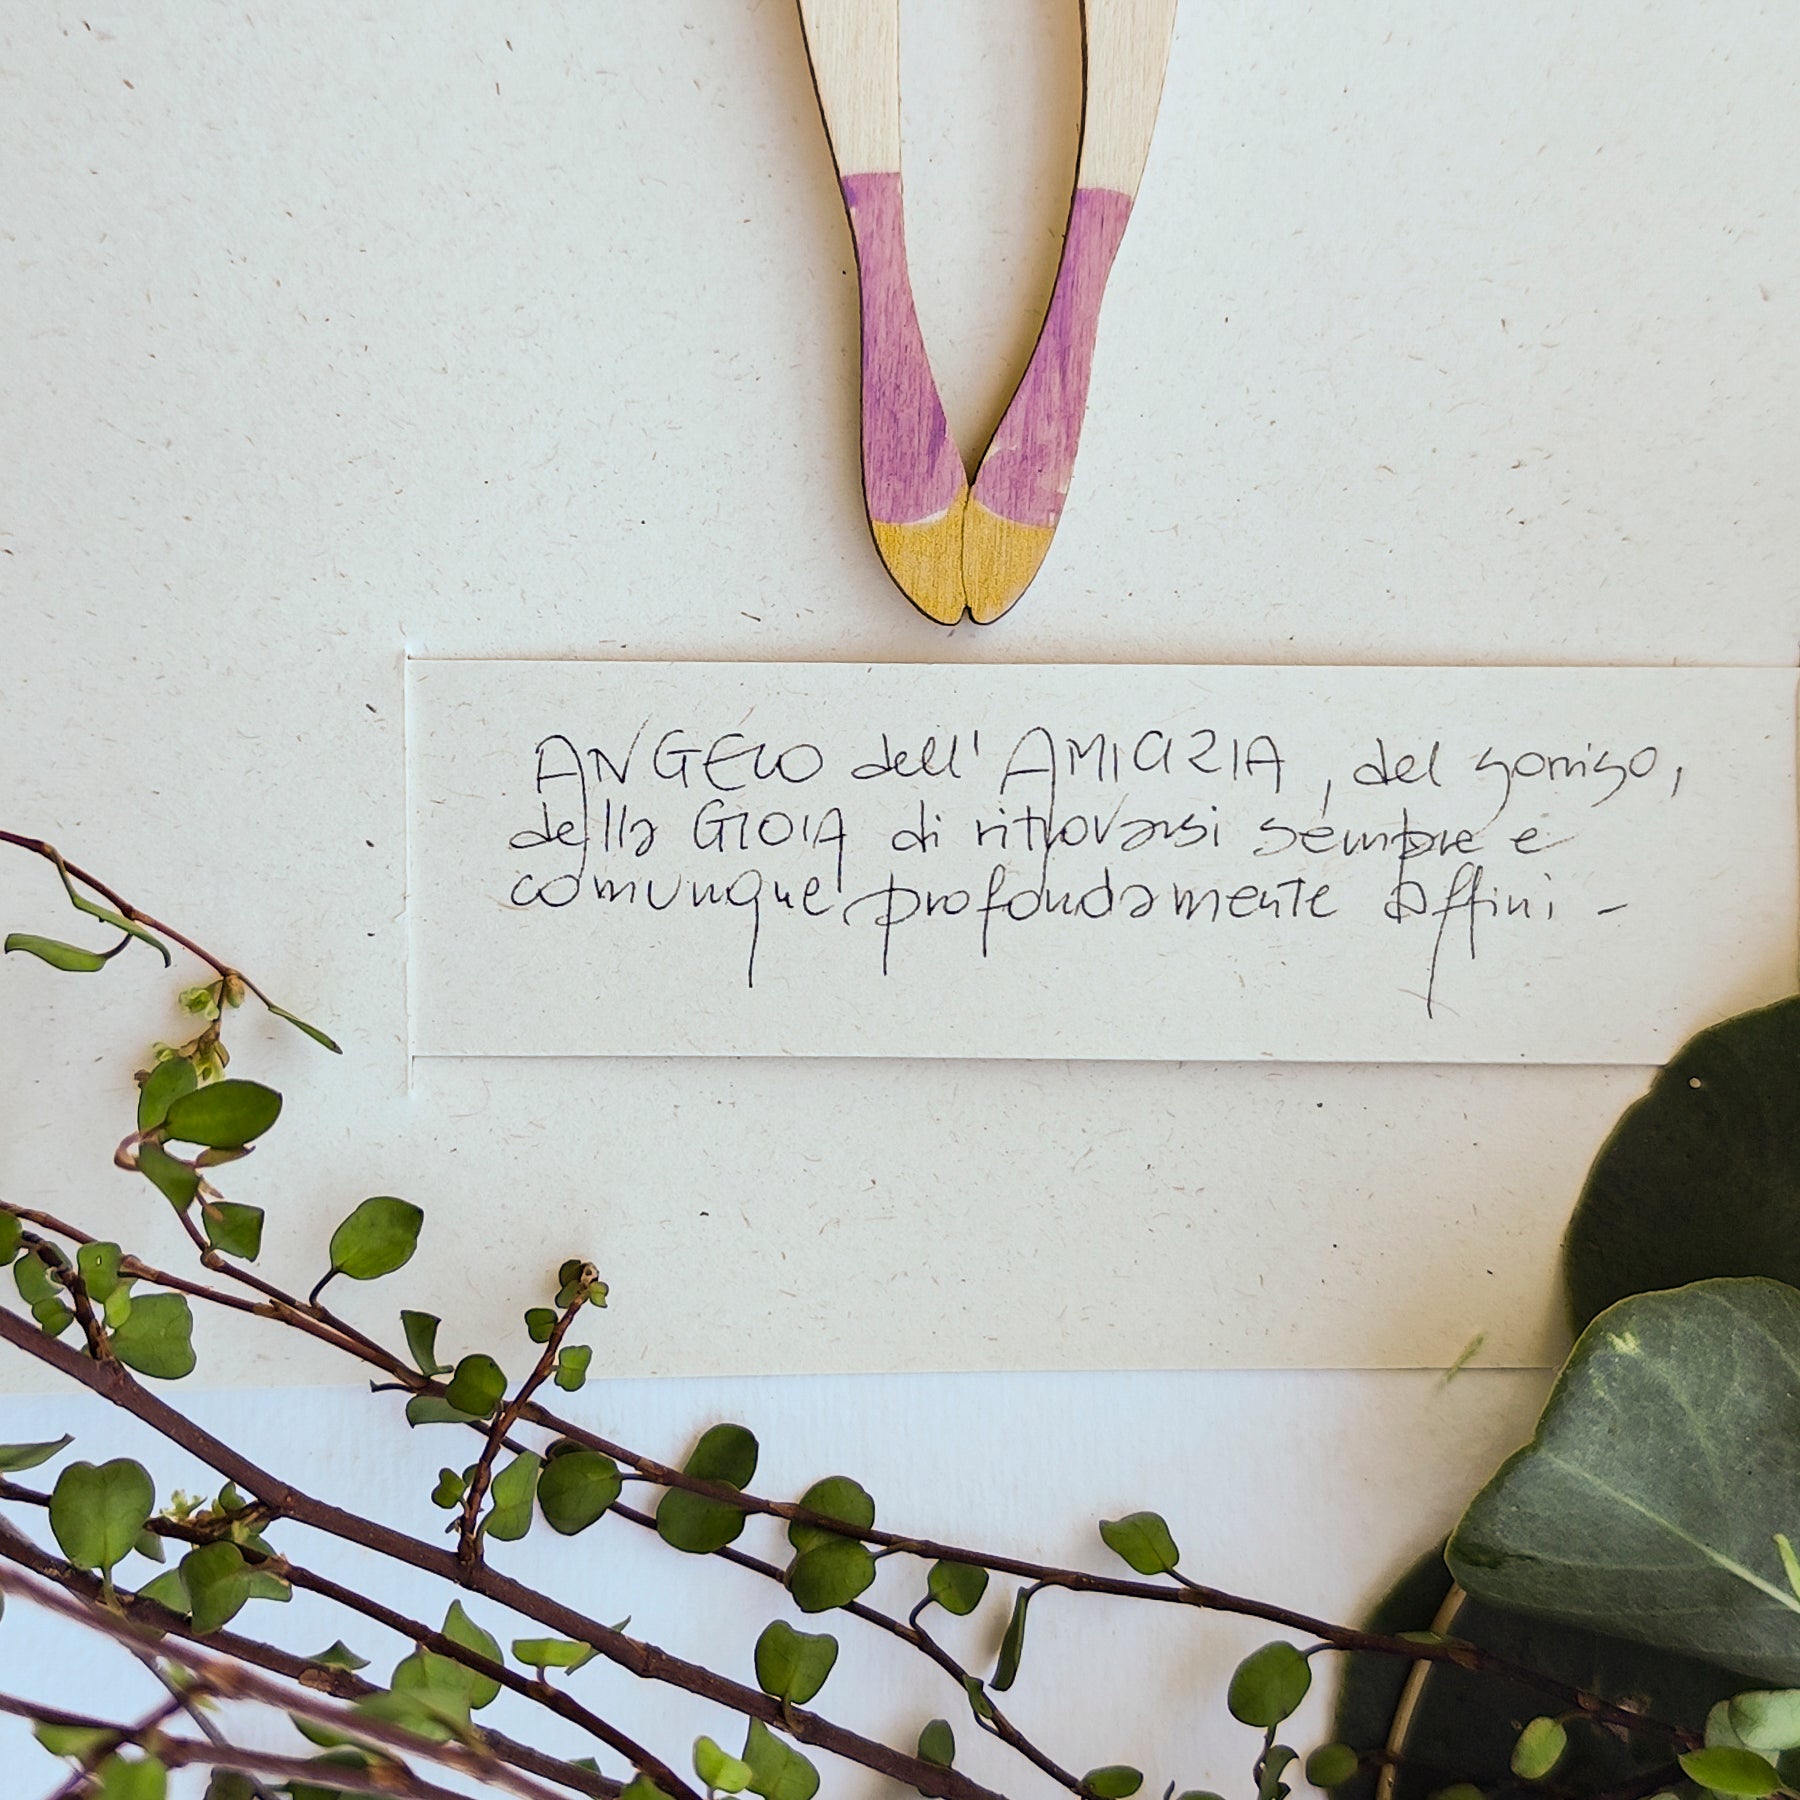 ANGELO dell'AMICIZIA, del sorriso,
della GIOIA di ritrovarsi sempre e
comunque profondamente affini -